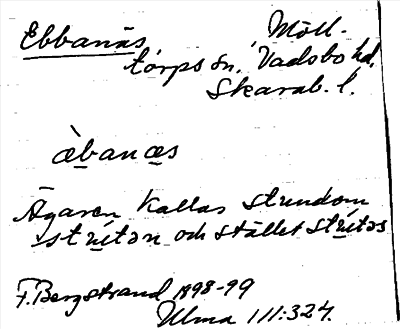 Ebbanäs, Möll-
torps sn, Vadsbo hd,
Skarab. l.
æ̀banæs
Ägaren kallas stundom
strítən och stället strítəs
F. Bergstrand 1898-99
Ulma 111:324.